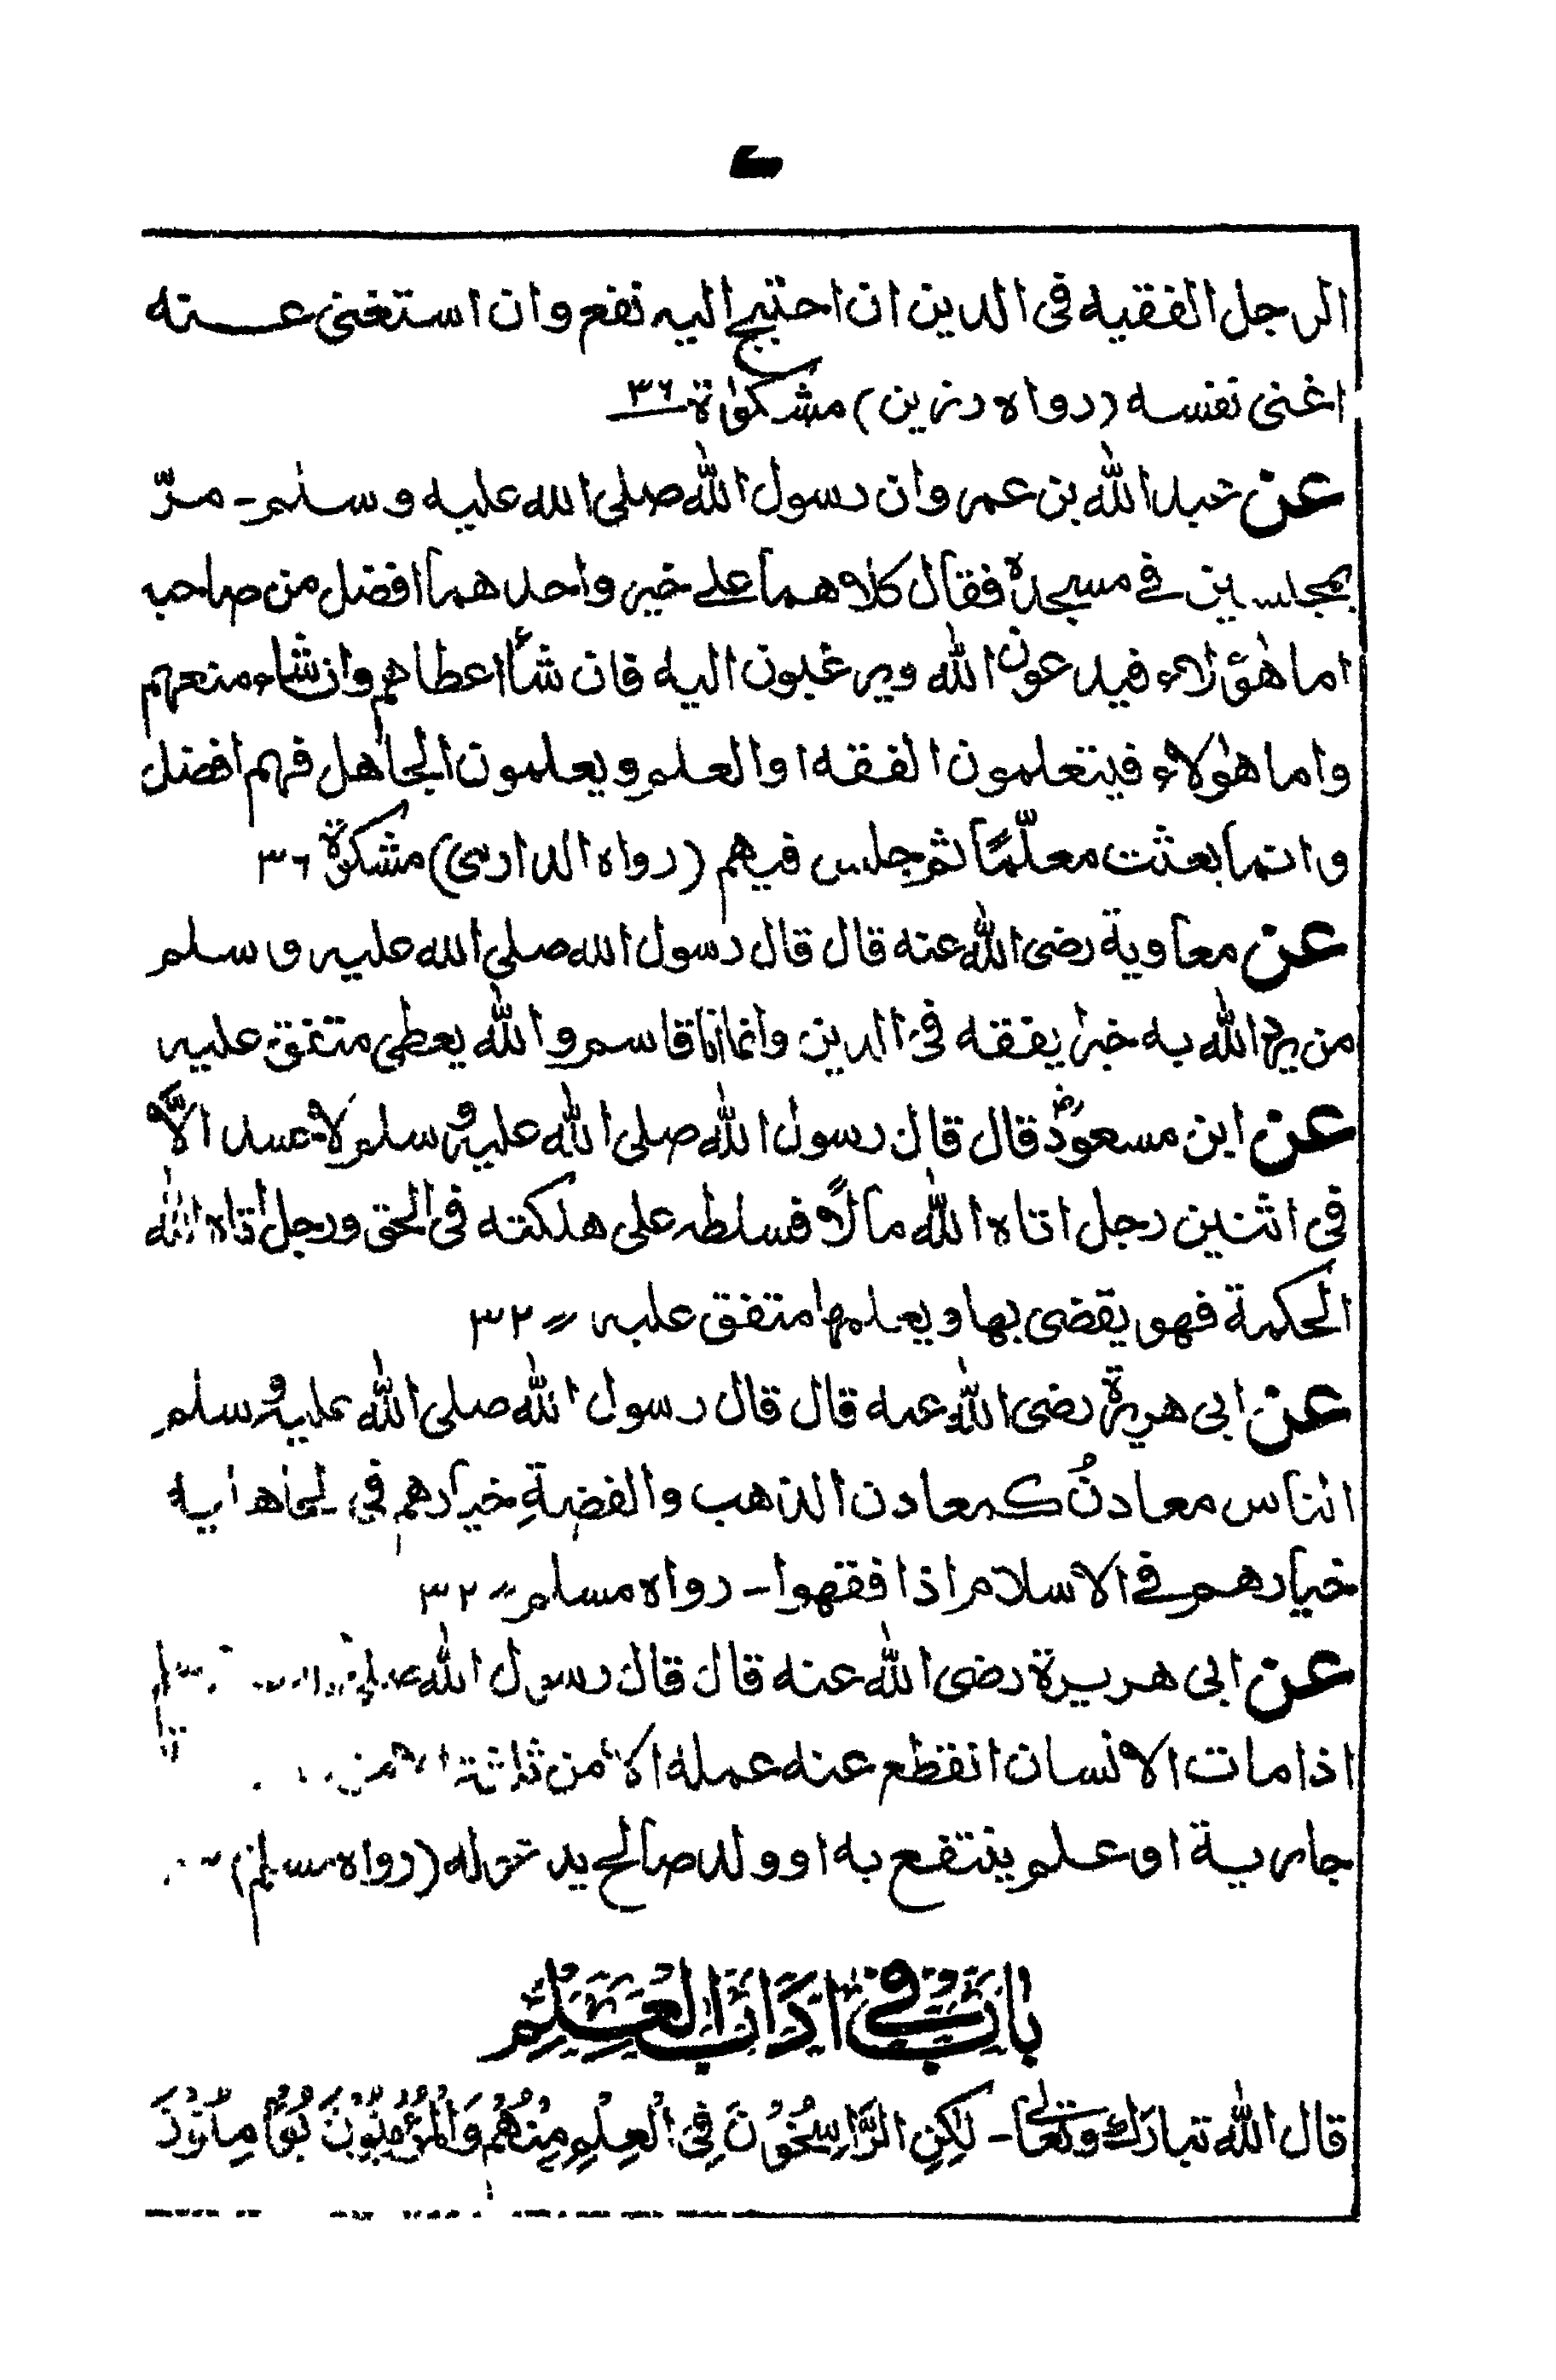 الرجل الفقيه فى الدين ان احتيج اليه نفع وان استغنى عنه
اغنى نفسه (رواه رزين) مشكوٰة ٣٦
عن عبد الله بن عمر وان رسول الله صلى الله عليه وسلم - مرّ
بمجلسين فے مسجده فقال كلاهما علے خير واحدهما افضل من صاحبه
اما هٰؤلاء فيدعون الله ويرغبون اليه فان شأ اعطاهم وان شاء منعهم
واما هٰولاء فيتعلمون الفقه او العلم ويعلمون الجاهل فهم افضل
وانما بعثت معلّمًا ثم جلس فيهم (رواه الدارمى) مشكوٰة ٣٦
عن معاوية رضى الله عنه قال قال رسول الله صلى الله عليه وسلم
من يرد الله به خيرا يفقه فى الدين وانما انا قاسم والله يعطى متفق عليه
عن ابن مسعودؓ قال قال رسول الله صلى الله عليه وسلم لا حسد الّا
فى اثنين رجل اتاه الله مالًا فسلطه على هلكته فى الحق ورجل اتاه الله
الحكمة فهو يقضى بها ويعلمها متفق عليه ٣٢
عن ابى هريرة رضى الله عنه قال قال رسول الله صلى الله عليه وسلم
الناس معادنُ كمعادن الذهب والفضةِ خيارهم فى الجاهلية
خيارهم فے الاسلام اذا فقهوا - رواه مسلم ٣٢
عن ابى هريرة رضى الله عنه قال قال رسول الله صلى
اذا مات الانسان انقطع عنه عمله الا من ثلاثة الا من
جارية او علم ينتفع به او ولد صالح يدعو له (رواه مسلم)
بَابٌ فِىْ اٰدَابِ الْعِلْمِ
قال الله تبارك وتعالى - لٰكِنِ الرَّاسِخُوْنَ فِى الْعِلْمِ مِنْهُمْ وَالْمُؤْمِنُوْنَ